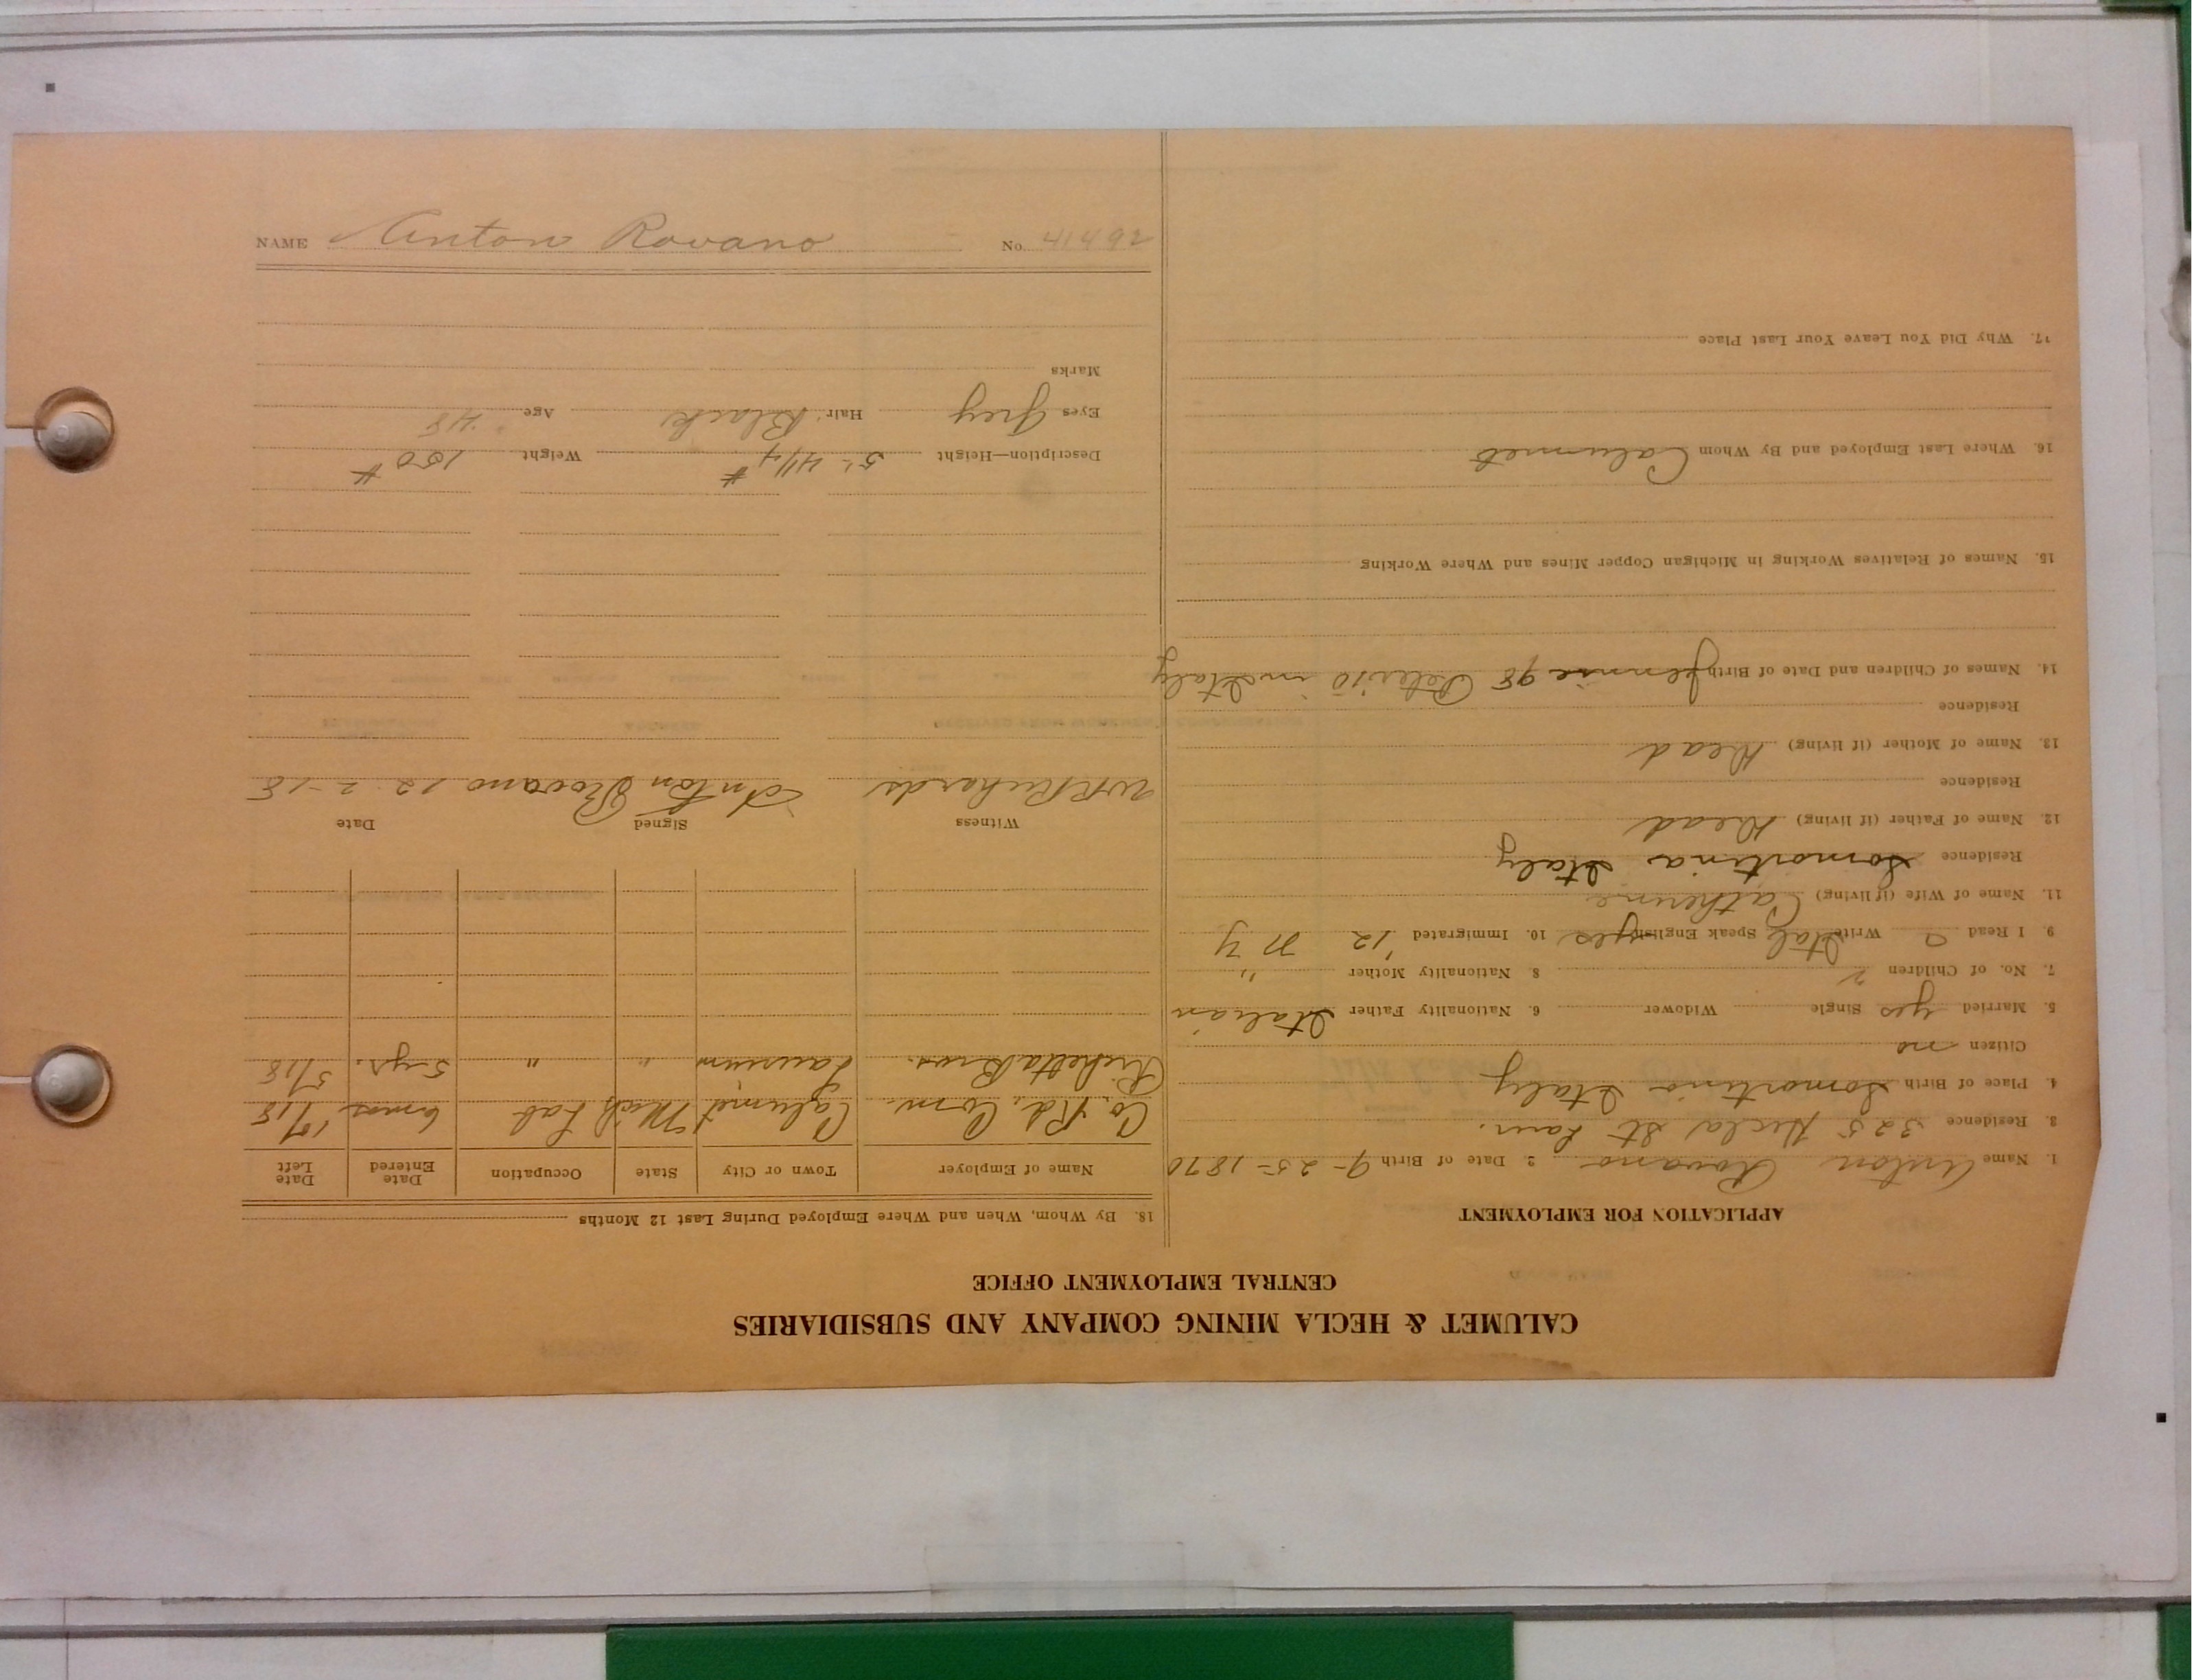 CALUMET & HECLA MINING COMPANY AND SUBSIDIARIES
CENTRAL EMPLOYMENT OFFICE
APPLICATION FOR EMPLOYMENT
1. Name Anton Rovano 2. Date of Birth 9-25-1870
3. Residence 325 Hecla St Laur.
4. Place of Birth Somartina Italy
Citizen no
5. Married yes Single Widower 6. Nationality Father Italian
7. No. of Children 2 8. Nationality Mother "
9. I Read Write Ital Speak English yes 10. Immigrated '12 N Y
11. Name of Wife (if living) Catherine
Residence Somartina Italy
12. Name of Father (if living) Dead
Residence
13. Name of Mother (if living) Dead
Residence
14. Names of Children and Date of Birth Jennie 98 in Italy
15. Names of Relatives Working in Michigan Copper Mines and Where Working
16. Where Last Employed and By Whom Calumet
17. Why Did You Leave Your Last Place
18. By Whom, When and Where Employed During Last 12 Months
Name of Employer Town or City State Occupation Date Entered Date Left
Co. Rd. Com. Calumet Mich Lab 6 mos 10/18
Richetta Bros. Laurium " " 5 yrs. 5/18
Witness Signed Date
W R Richards Anton Rovano 12-2-18
Description—Height 5' 4 1/4 # Weight 150 #
Eyes Grey Hair Black Age 48
Marks
NAME Anton Rovano No. 41492